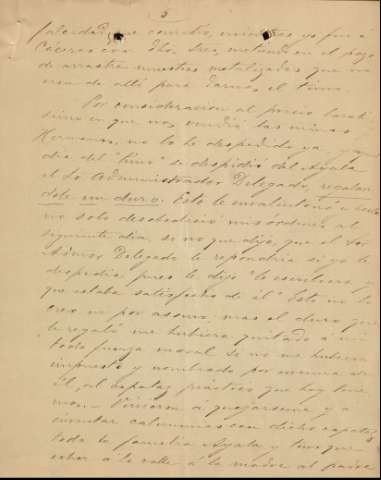 5
que cometió, mientras yo fuí á
Cáceres con Dhos Sres, metiendo en el pozo
de arrastre muestras metalizadas que no
eran de allí para darnos el timo.
Por consideracion al precio
en que nos vendió las minas
Hermanos, no lo he despedido ya, y
dia del "timo" se despidió del Ayala
el Sr Administrador Delegado, regalan-
dole un duro. Esto le envalentonó é hecho
no solo desobedeció mis órdenes al
siguiente dia, si no que dijo, que el Sor
Admor Delegado le repondria si yo le
despedia, pues le dijo le escribiera y
que estaba satisfecho de él. Esto no lo
creo ni por asomo, mas el duro que
le regaló me hubiera quitado á mi
toda fuerza moral si no me hubiera
impuesto y nombrado por encima de
él, al capataz práctico que hoy tene-
mos. Vinieron á quejarseme y á
inventar calumnias con dicho capataz
toda la familia Ayala y tuve que
echar á la calle á la madre al padre